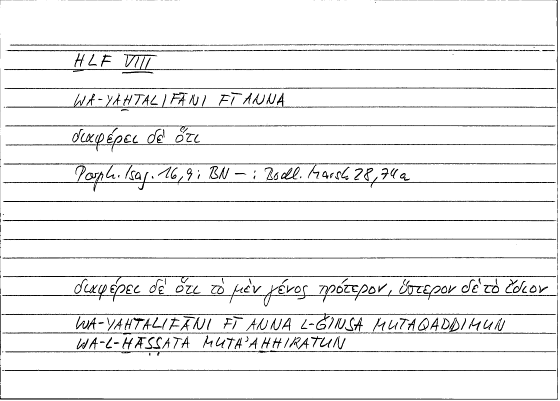 ḪLF VIII
WA-YAḪTALIFĀNI FĪ ANNA
διαφέρει δὲ ὅτι
Porph. Isag. 16,9; BN – ; Bodl. Marsh 28,74a
διαφέρει δὲ ὅτι τὸ μὲν γένος πρότερον, ὕστερον δὲ τὸ ἴδιον
WA-YAḪTALIFĀNI FĪ ANNA L-ǦINSA MUTAQADDIMUN
WA-L-ḪĀṢṢATA MUTAʾAḪḪIRATUN